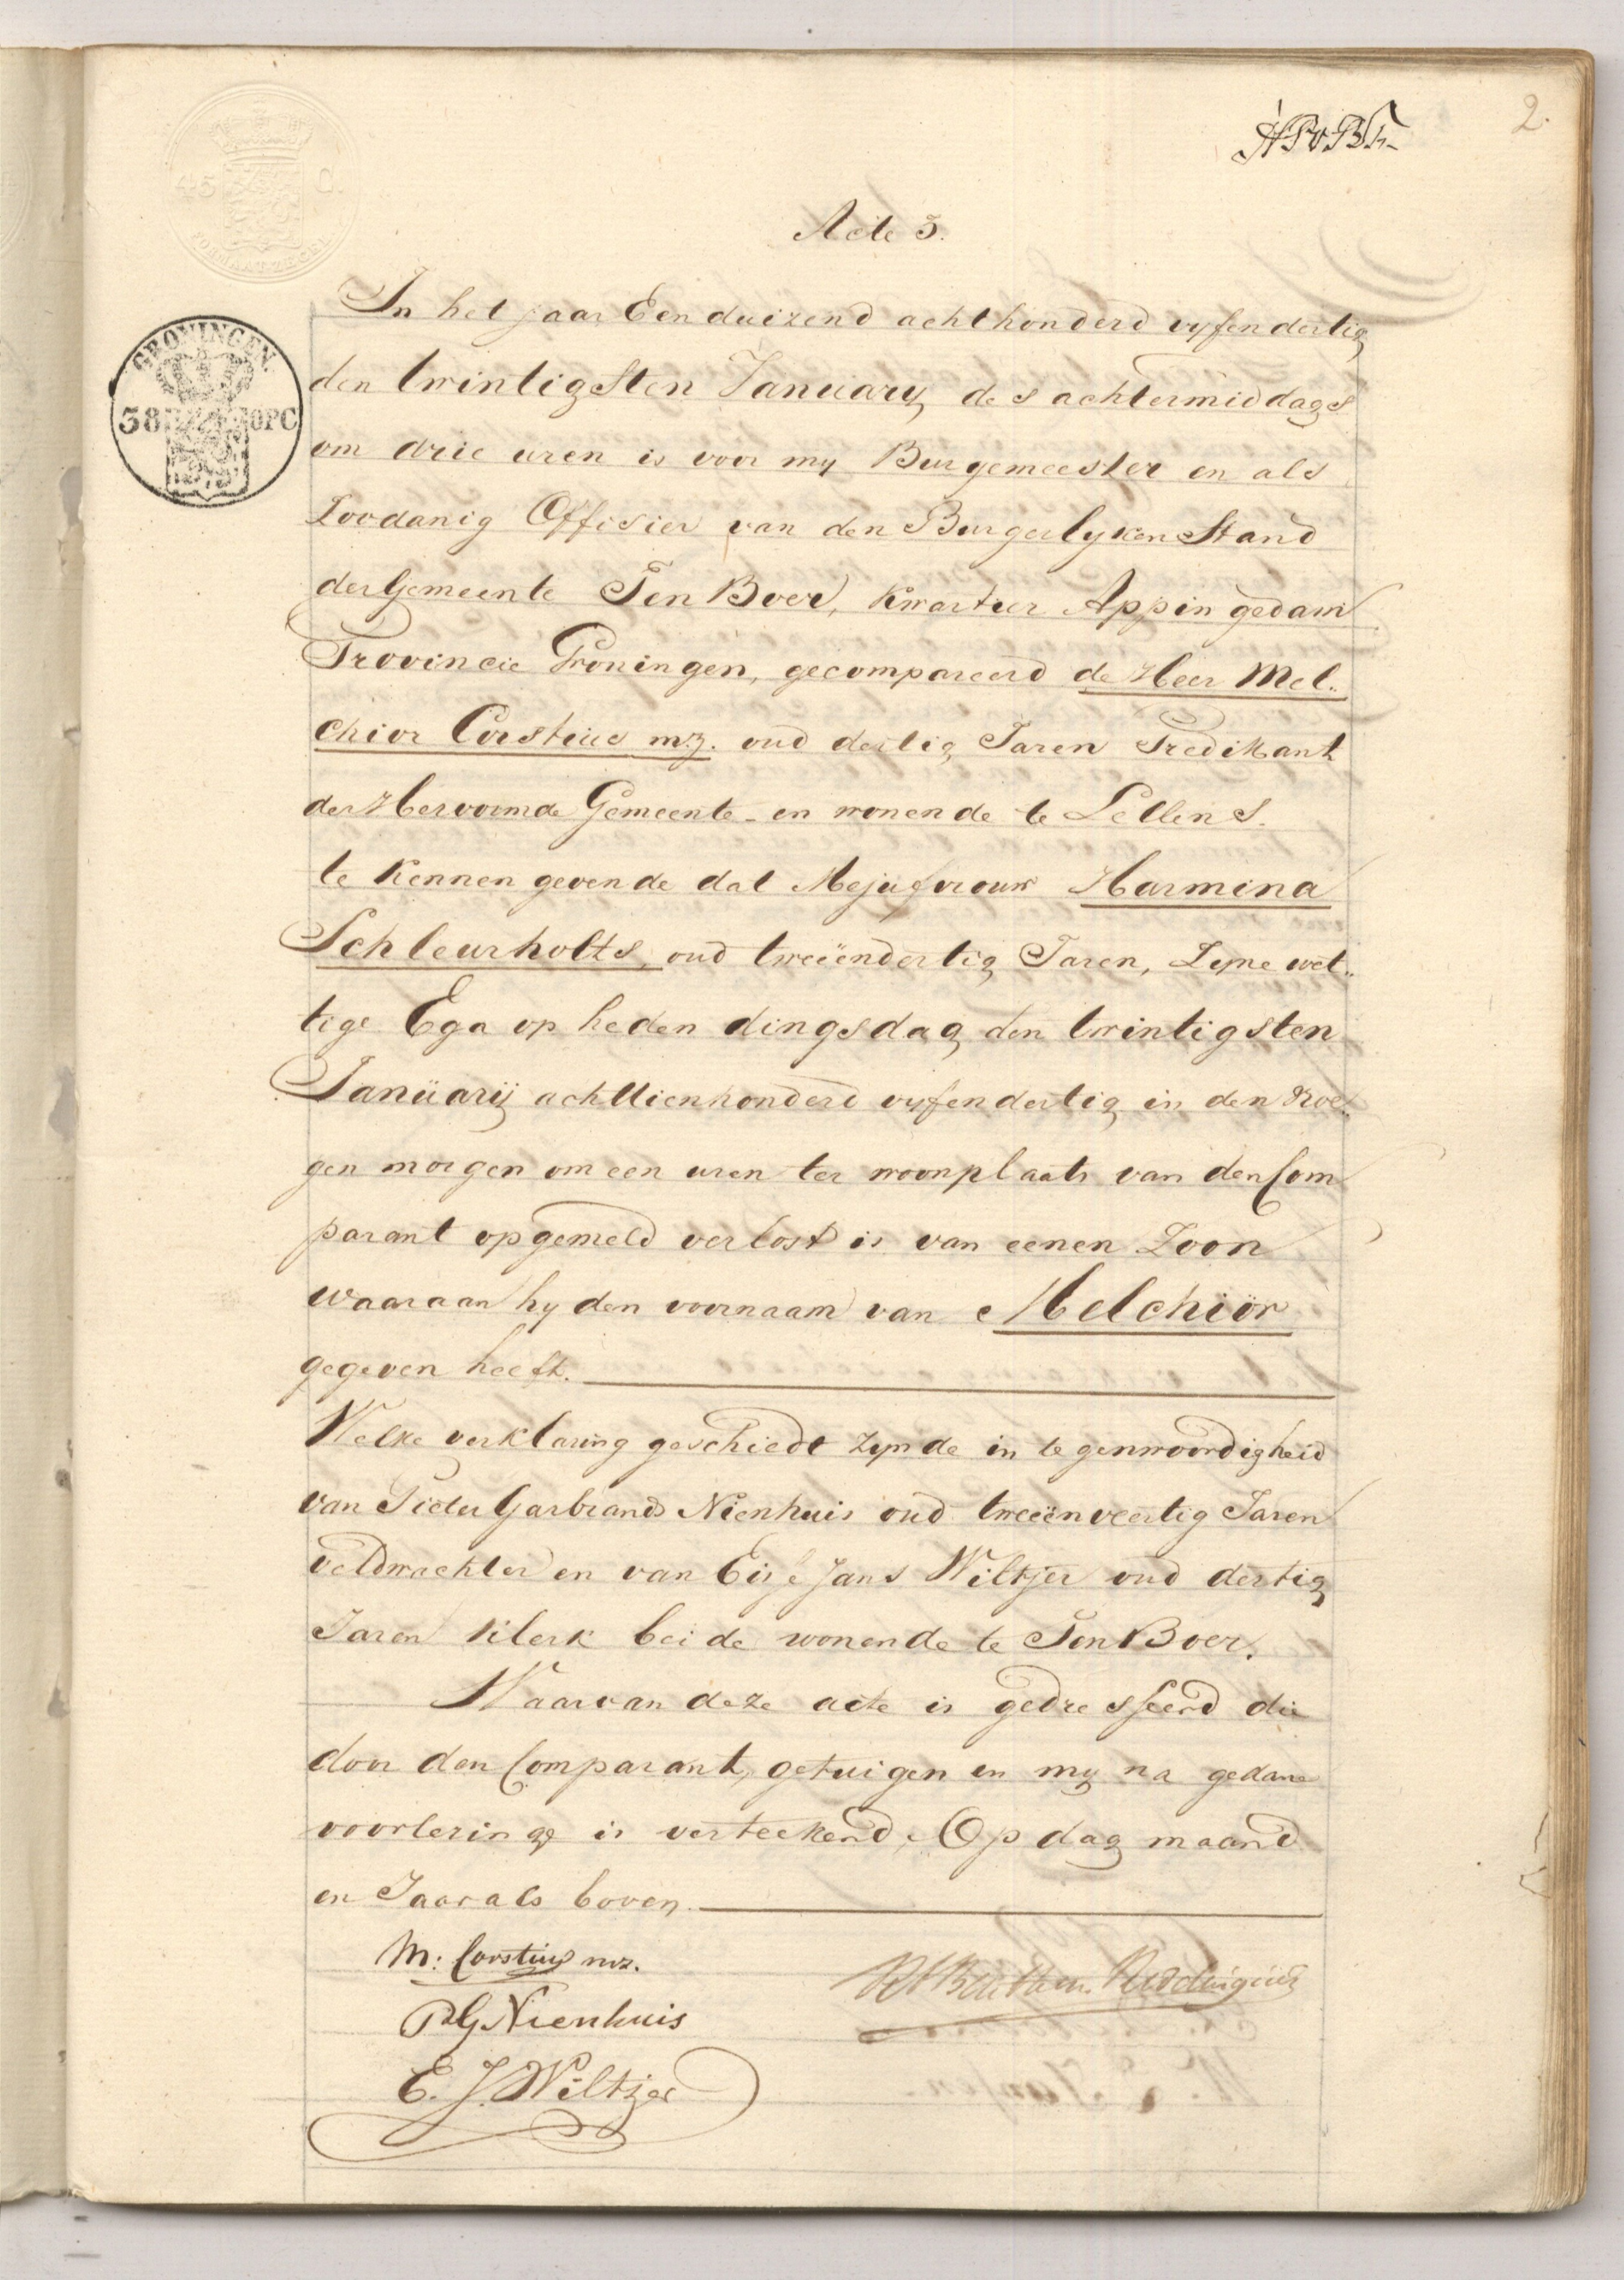 2.
Acte 5.
45 C.
FORMAAT ZEGEL
GRONINGEN.
38 OPC
In het jaar Eenduizend achthonderd vyfendertig
den twintigsten January des achtermiddags
om drie uren is voor my Burgemeester en als
Zoodanig Offisier van den Burgerlyken Stand
der Gemeente Ten Boer, Kwartier Appingedam
Provincie Groningen, gecompareerd de Heer Mel„
chior Corstius mz. oud dertig Jaren Predikant
der Hervormde Gemeente en wonende te Lellens.
te Kennen gevende dat Mejufvrouw Harmina
Schleurholts, oud tweeëndertig Jaren, Zyne wet„
tige Ega op heden dingsdag den twintigsten
Januarij achttienhonderd vyfendertig in den Vroe„
gen morgen om een uren ter woonplaats van den Com
parant opgemeld verlost is van eenen Zoon
waaraan hy den voornaam van Melchior
gegeven heeft.
Welke verklaring geschiedt zynde in tegenwoordigheid
van Pieter Garbrands Nienhuis oud tweeënveertig Jaren
veldwachter en van Eisse Jans Wiltjer oud dertig
Jaren klerk beide wonende te Ten Boer.
Waarvan deze acte is gedresseerd die
door den Comparant, getuigen en my na gedane
voorlezing is verteekend, Op dag maand
en Jaar als boven.
M: Corstius mz.
PG Nienhuis
E. J. Wiltjer